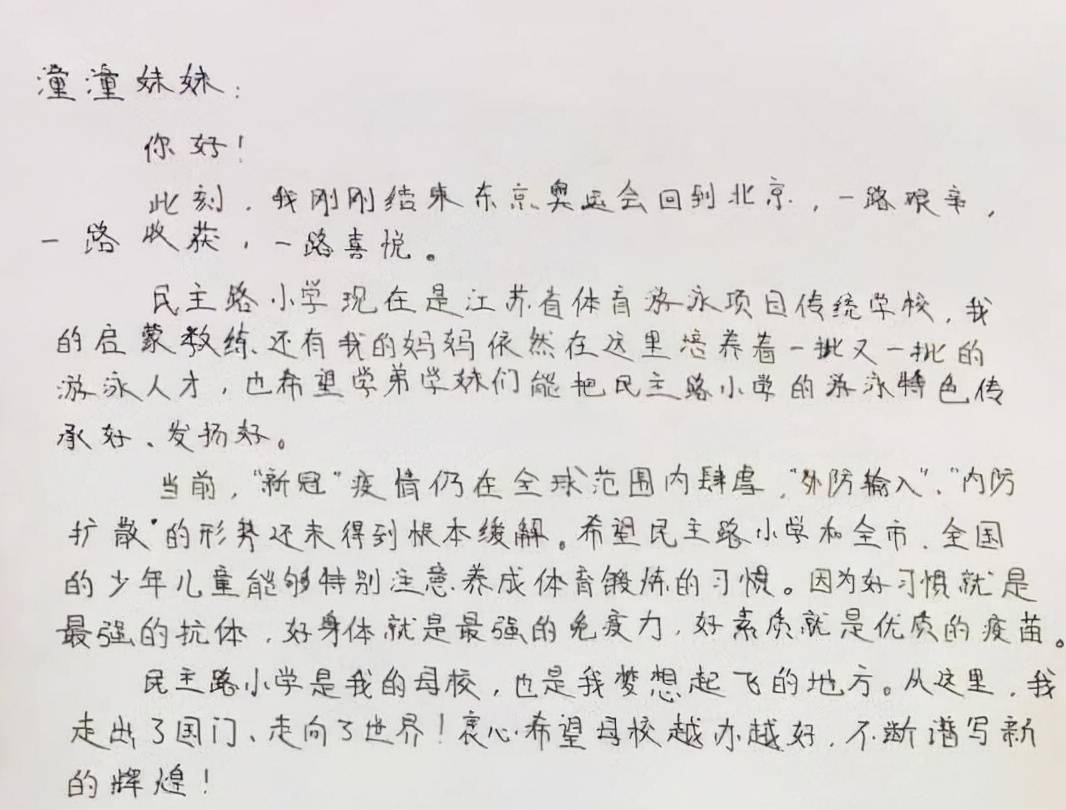 潼潼妹妹：
你好！
此刻，我刚刚结束东京奥运会回到北京，一路艰辛，
一路收获，一路喜悦。
民主路小学现在是江苏省体育游泳项目传统学校，我
的启蒙教练还有我的妈妈依然在这里培养着一批又一批的
游泳人才，也希望学弟学妹们能把民主路小学的游泳特色传
承好、发扬好。
当前，“新冠”疫情仍在全球范围内肆虐，“外防输入”、“内防
扩散”的形势还未得到根本缓解。希望民主路小学和全市、全国
的少年儿童能够特别注意养成体育锻炼的习惯。因为好习惯就是
最强的抗体，好身体就是最强的免疫力，好素质就是优质的疫苗。
民主路小学是我的母校，也是我梦想起飞的地方。从这里，我
走出了国门、走向了世界！衷心希望母校越办越好，不断谱写新
的辉煌！